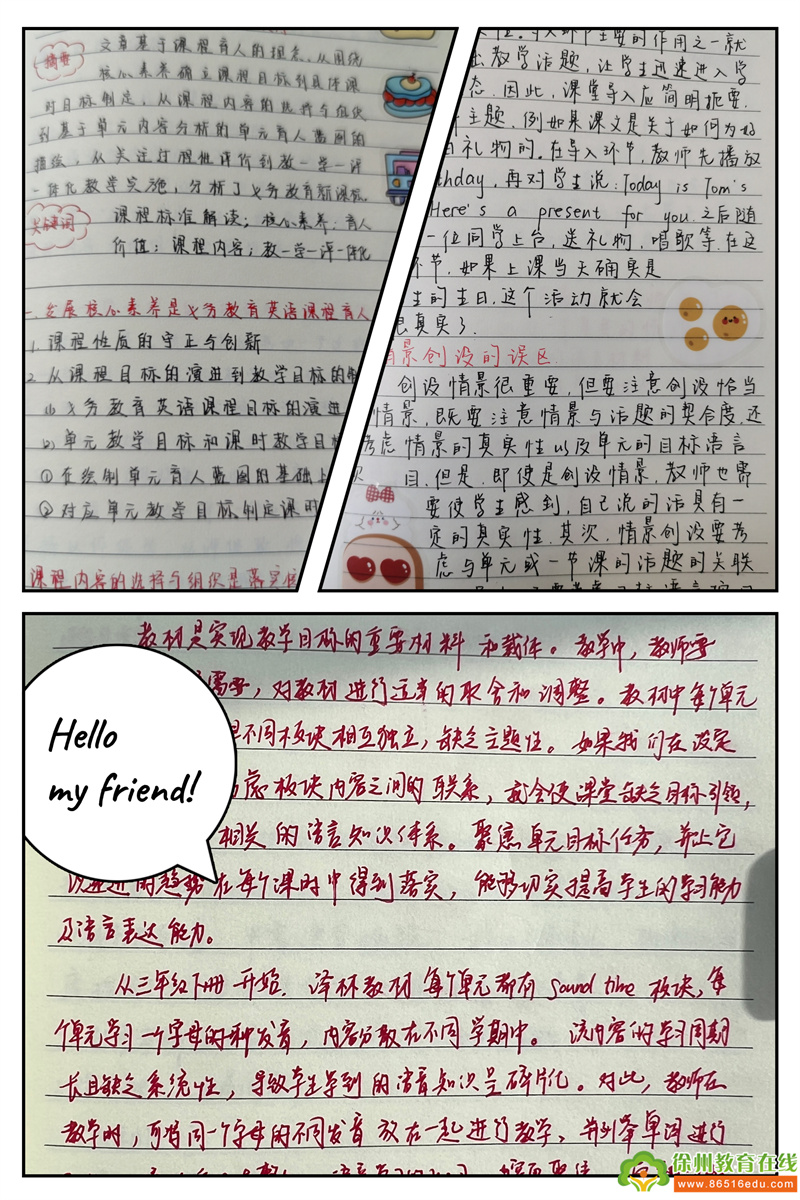 摘要
文章基于课程育人的理念，从围绕
核心素养确立课程目标到具体课
时目标制定，从课程内容的选择与组织
到基于单元内容分析的单元育人蓝图的
描绘，从关注过程性评价到教一学一评
一体化教学实施，分析了义务教育新课标
关键词
课程标准解读；核心素养；育人
价值；课程内容；教一学一评一体化
一.发展核心素养是义务教育英语课程育人
1.课程性质的守正与创新
2.从课程目标的演进到教学目标的
(1)义务教育英语课程目标的演进
(2)单元教学目标和课时教学目标
①在绘制单元育人蓝图的基础上
②对应单元教学目标制定课时
课程内容的选择与组织是落实
导入环节主要的作用之一就
出教学话题，让学生迅速进入学
态.因此，课堂导入应简明扼要.
主题.例如果课文是关于如何为
礼物的.在导入环节，教师先播放
thday，再对学生说：Today is Tom's
Here's a present for you.之后随
一位同学上台，送礼物，唱歌等.在这
环节，如果上课当天确实是
生的生日，这个活动就会
很真实了.
情景创设的误区.
创设情景很重要，但要注意创设恰当
情景，既要注意情景与话题的契合度，还
考虑情景的真实性以及单元的目标语言
目.但是，即使是创设情景，教师也需
要使学生感到，自己说的话具有一
定的真实性.其次，情景创设要考
虑与单元或一节课的话题的关联
教材是实现教学目标的重要材料和载体。教学中，教师要
需要，对教材进行适当的取舍和调整。教材中每个单元
是不同板块相互独立，缺乏主题性。如果我们在设定
虑板块内容之间的联系，就会使课堂缺乏目标引领，
相关的语言知识体系。聚焦单元目标任务，并让它
以递进的趋势在每个课时中得到落实，能够切实提高学生的学习能力
及语言表达能力。
从三年级下册开始，译林教材每个单元都有Sound time板块，每
个单元学习一个字母的一种发音，内容分散在不同学期中。该内容的学习周期
长且缺乏系统性，导致学生学到的语音知识呈碎片化。对此，教师在
教学时，可将同一个字母的不同发音放在一起进行教学，并列举单词进行
Hello
my friend!
徐州教育在线
www.86516edu.com